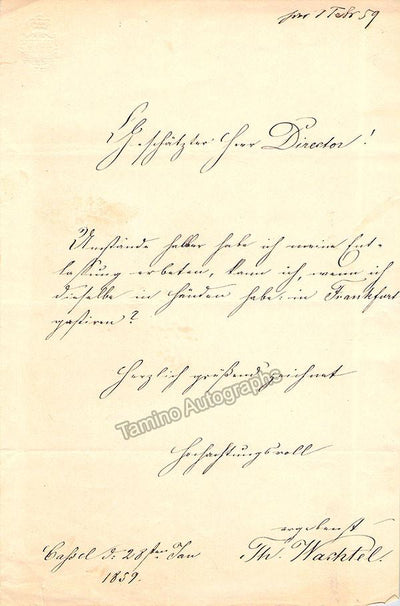 1 Febr 59
Geschätzter Herr Director!
Umstände halber habe ich meine Ent-
lassung erbeten, kann ich, wenn ich
dieselbe in Händen habe: in Frankfurt
gastiren?
Herzlich grüßend zeichnet
Tamino Autographs
Hochachtungsvoll
ergebenst
Caßel d: 28sten Jan
Th. Wachtel.
1859.